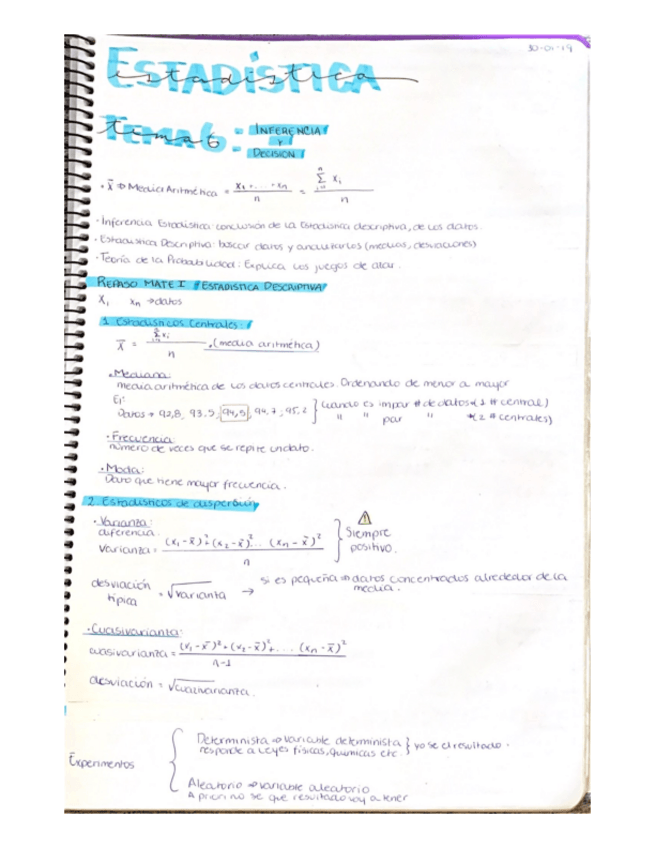 30-01-19
ESTADÍSTICA
estadística
TEMA 6:
tema 6
INFERENCIA
Y
DECISIÓN
· x̄ ⇒ Media Aritmética = x₁ + ... + xₙ / n = Σ xᵢ / n
· Inferencia Estadística: conclusión de la Estadística descriptiva, de los datos.
· Estadística Descriptiva: buscar datos y analizarlos (medias, desviaciones)
· Teoría de la Probabilidad: Explica los juegos de azar.
REPASO MATE I // ESTADÍSTICA DESCRIPTIVA
X₁ xₙ → datos
1. Estadísticos Centrales:
x̄ = Σ xᵢ / n · (media aritmética)
· Mediana:
media aritmética de los datos centrales. Ordenando de menor a mayor
Ej:
Datos → 92,8, 93,5, 94,5, 94,7, 95,2 } cuando es impar # de datos → (1 # central)
" " par " → (2 # centrales)
· Frecuencia:
número de veces que se repite un dato.
· Moda:
Dato que tiene mayor frecuencia.
2. Estadísticos de dispersión
· Varianza:
diferencia.
Varianza = (x₁ - x̄)² + (x₂ - x̄)² ... (xₙ - x̄)² / n } Siempre positivo.
desviación típica = √varianza → si es pequeña ⇒ datos concentrados alrededor de la
media.
· Cuasivarianza:
cuasivarianza = (x₁ - x̄)² + (x₂ - x̄)² + ... (xₙ - x̄)² / n-1
desviación = √cuasivarianza.
Experimentos
Determinista ⇒ variable determinista } yo se el resultado.
responde a leyes físicas, químicas etc.
Aleatorio ⇒ variable aleatorio
A priori no se que resultado voy a tener